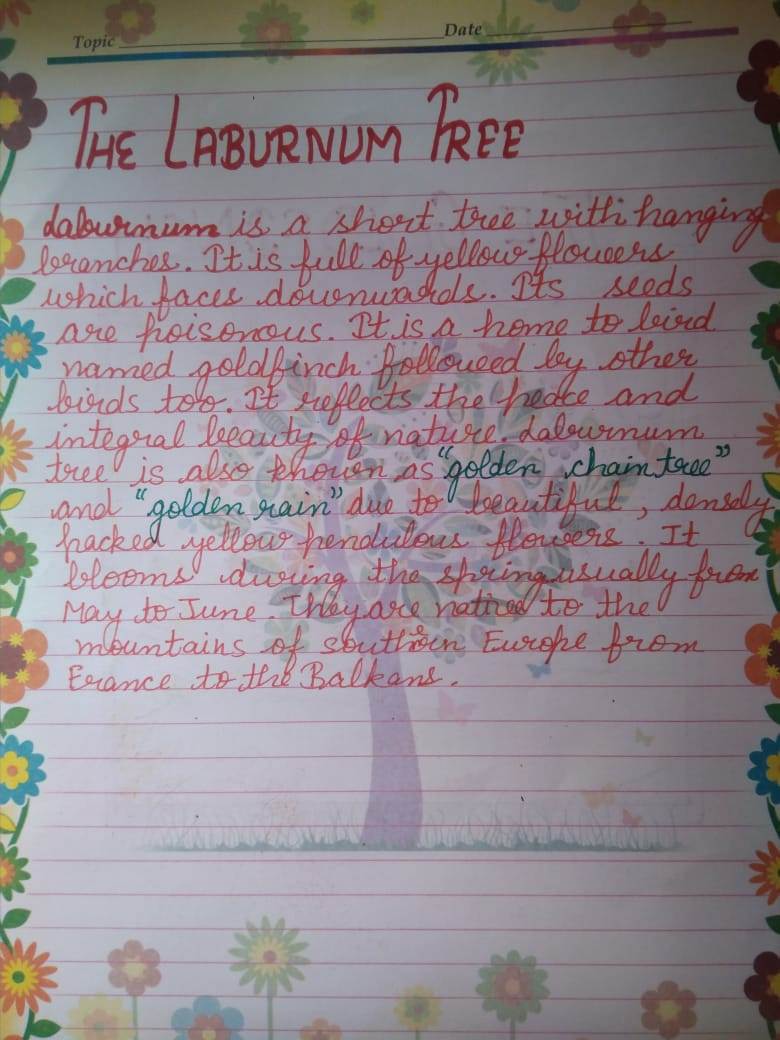 Topic
Date
THE LABURNUM TREE
Laburnum is a short tree with hanging
branches. It is full of yellow flowers
which faces downwards. Its seeds
are poisonous. It is a home to bird
named goldfinch followed by other
birds too. It reflects the peace and
integral beauty of nature. Laburnum
tree is also known as "golden chain tree"
and "golden rain" due to beautiful, densely
packed yellow pendulous flowers. It
blooms during the spring usually from
May to June. They are native to the
mountains of southern Europe from
France to the Balkans.